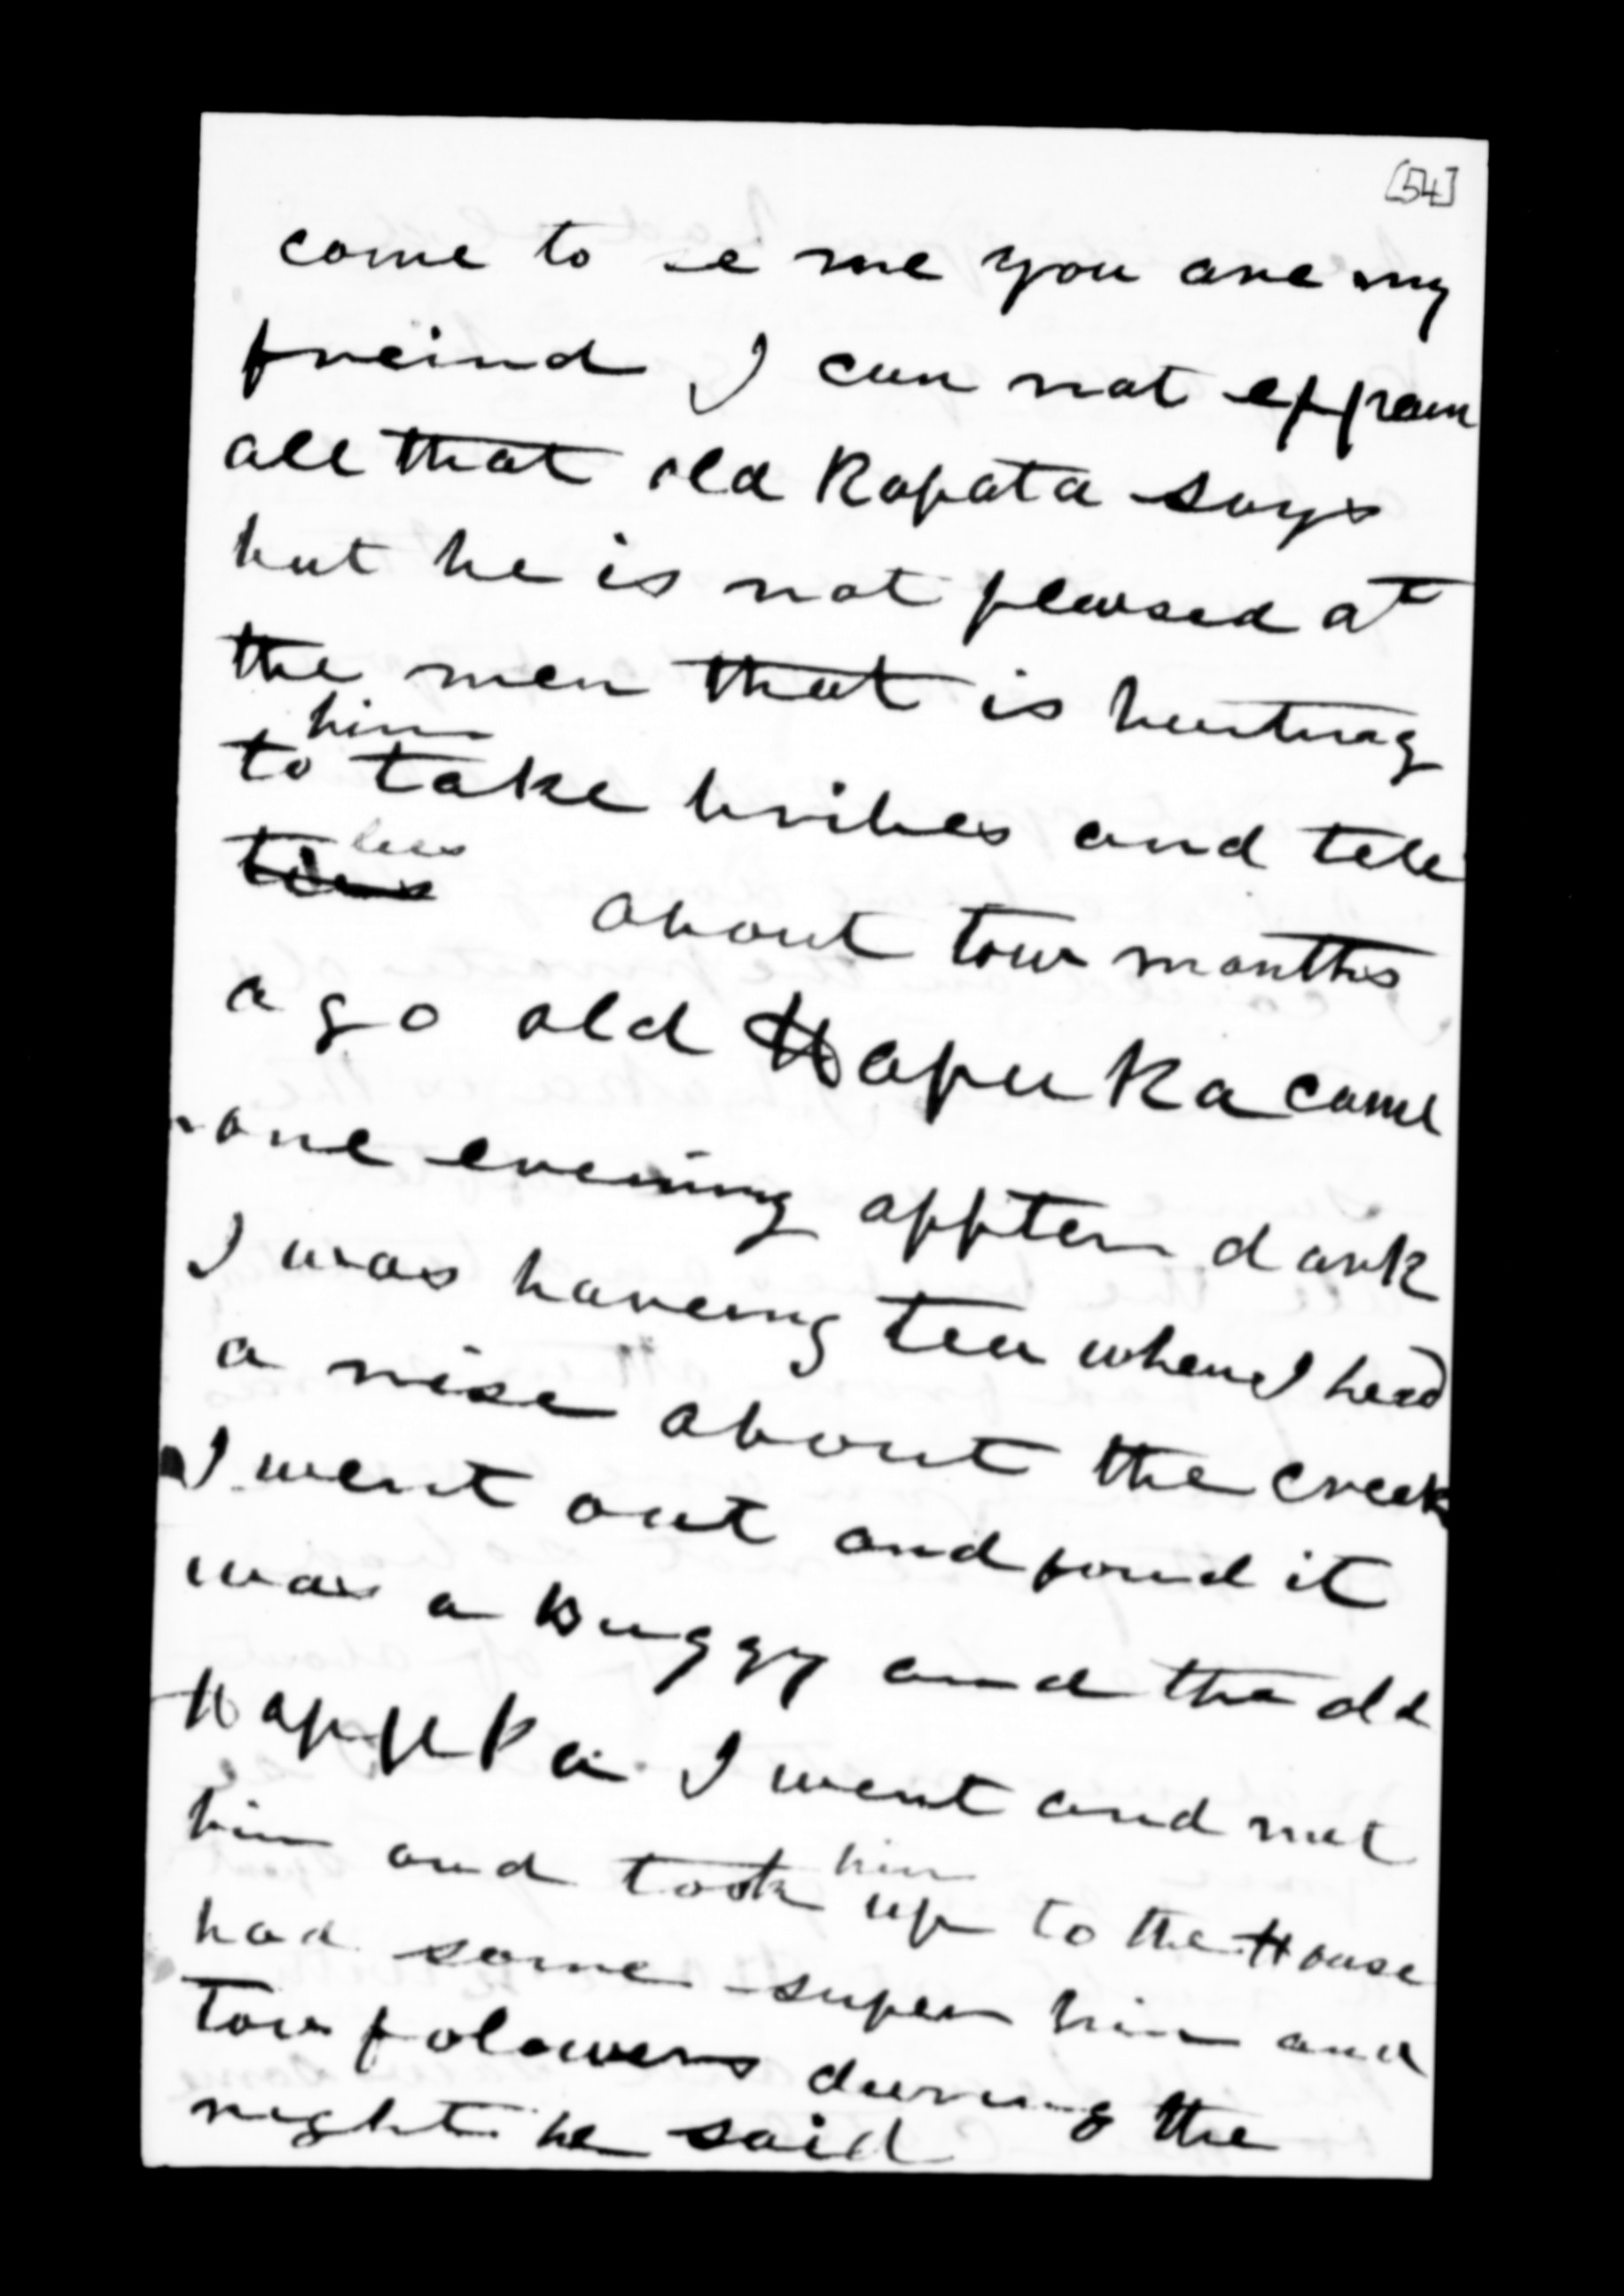 [54]
come to se me you are my
freind I can not effram
all that old Ropata says
but he is not pleased at
the men that is hurting
him
to take bribes and tell
lies
about tow months
a go old Hapuka came
one evening appter dark
I was haveing tea when I heard
a nise about the creek
I went out and found it
was a Buggy and the old
Hapuka I went and met
him and took him up to the House
had some super him and
tow folowers during the
night he said